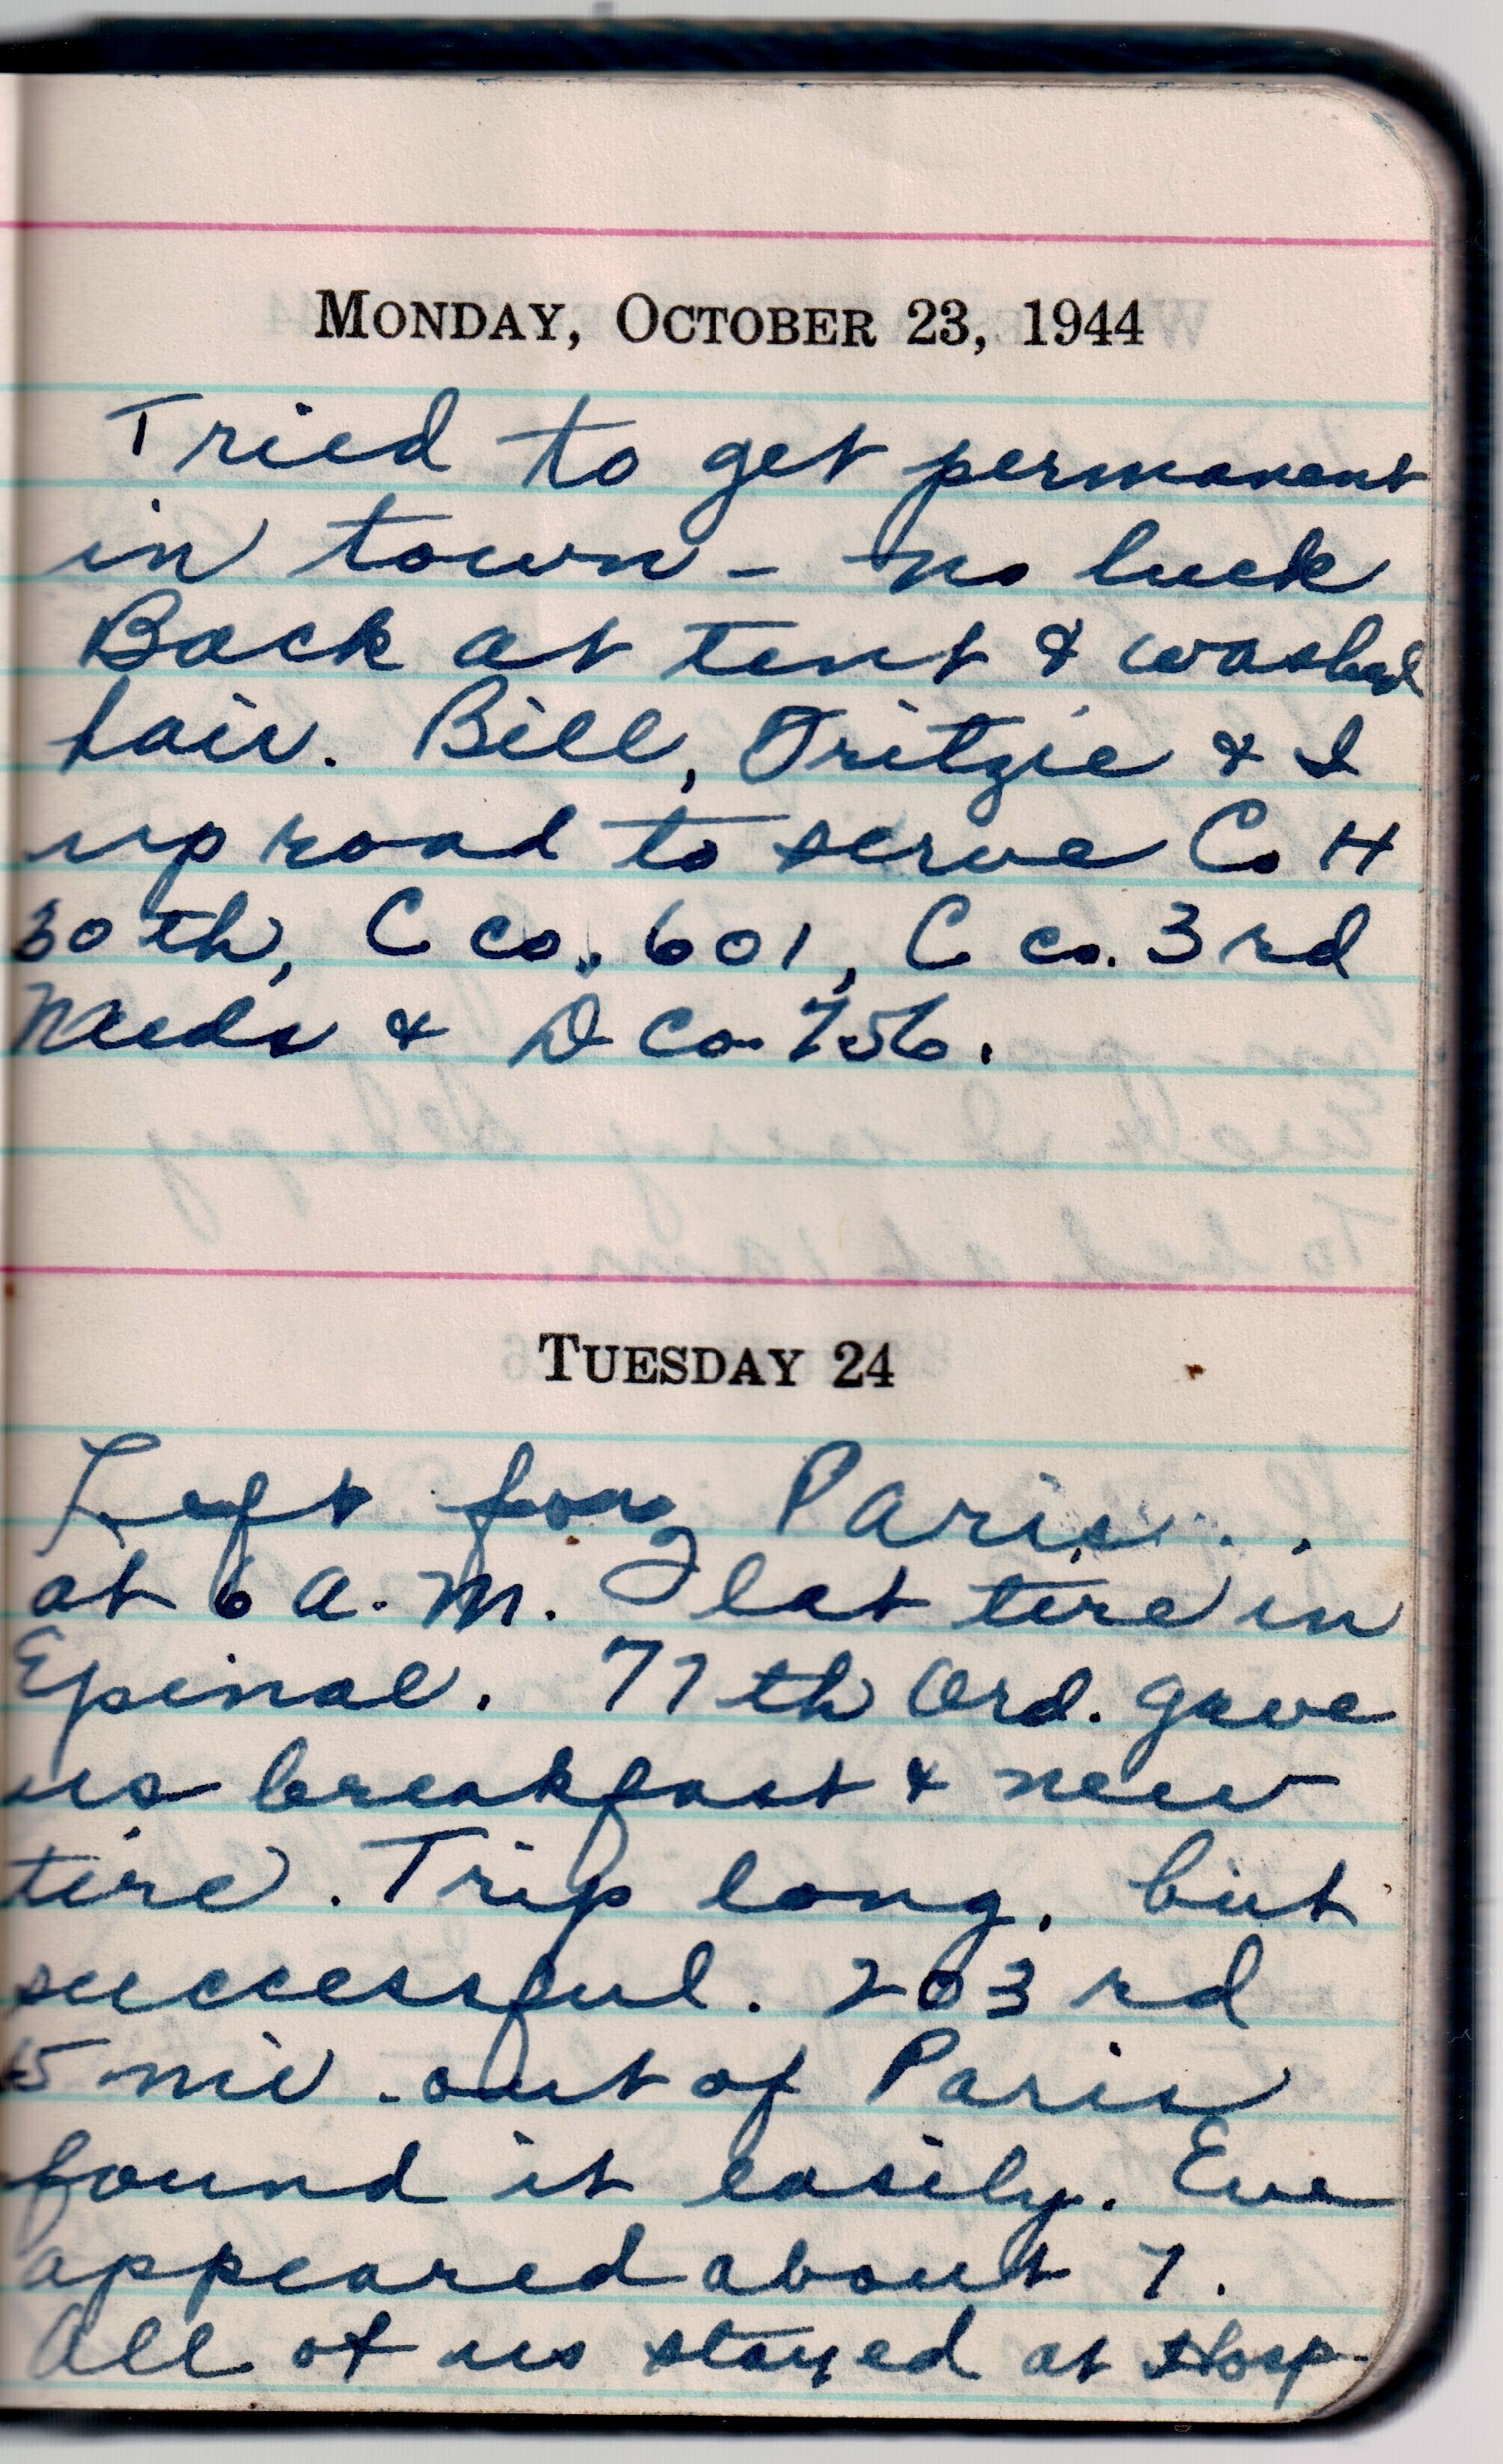 MONDAY, OCTOBER 23, 1944
Tried to get permanent
in town - no luck
Back at tent & washed
hair. Bill, Fritzie & I
up road to serve Co H
30th, C co., 601, C co. 3rd
Meds & D Co. 756.
TUESDAY 24
Left for Paris...
at 6 A.M. Flat tire in
Epinal. 77th Ord. gave
us breakfast & new
tire. Trip long, but
successful. 203rd
15 mi. out of Paris
found it easily. Eve
appeared about 7.
All of us stayed at Hosp.